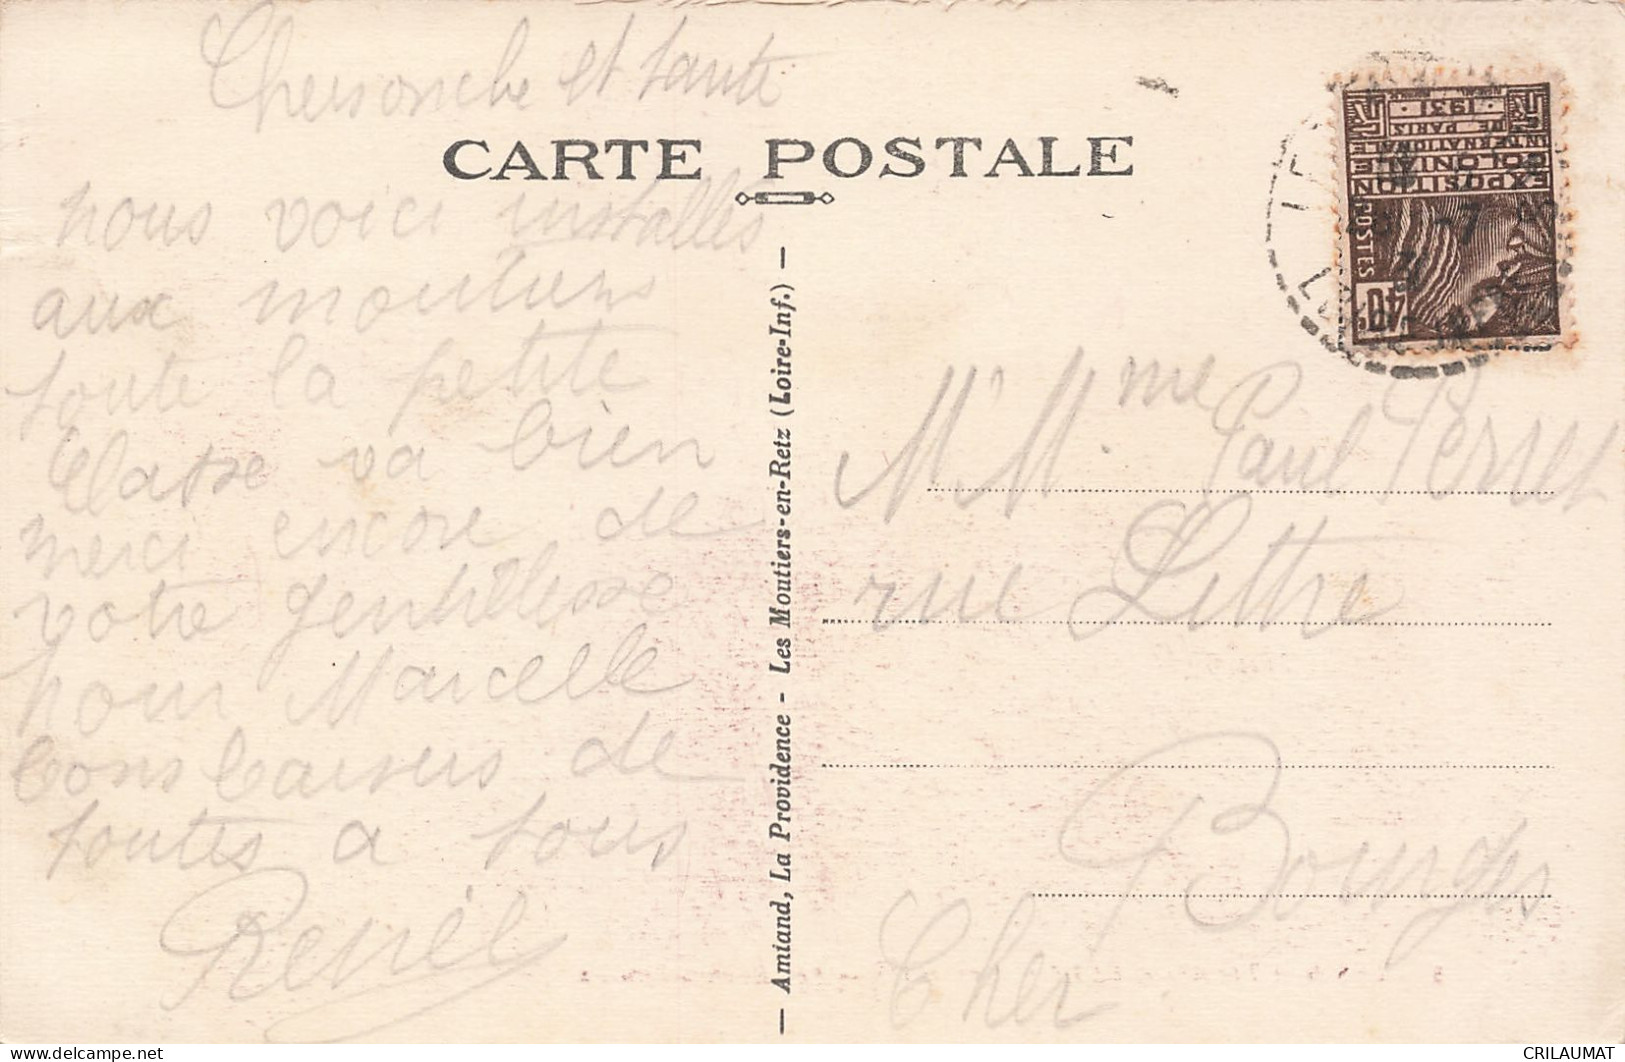 Cher oncle et tante
CARTE POSTALE
nous voici installés
aux moutiers
toute la petite
classe va bien
merci encore de
votre gentillesse
pour Marcelle
bons baisers de
toutes a tous
Renée
— Amiand, La Providence - Les Moutiers-en-Retz (Loire-Inf.) —
EXPOSITION
COLONIALE
INTERNATIONALE
DE PARIS
· 1931 ·
POSTES
40c
Mr Mme Paul Perret
rue Littre
Bourges
Cher
CRILAUMAT